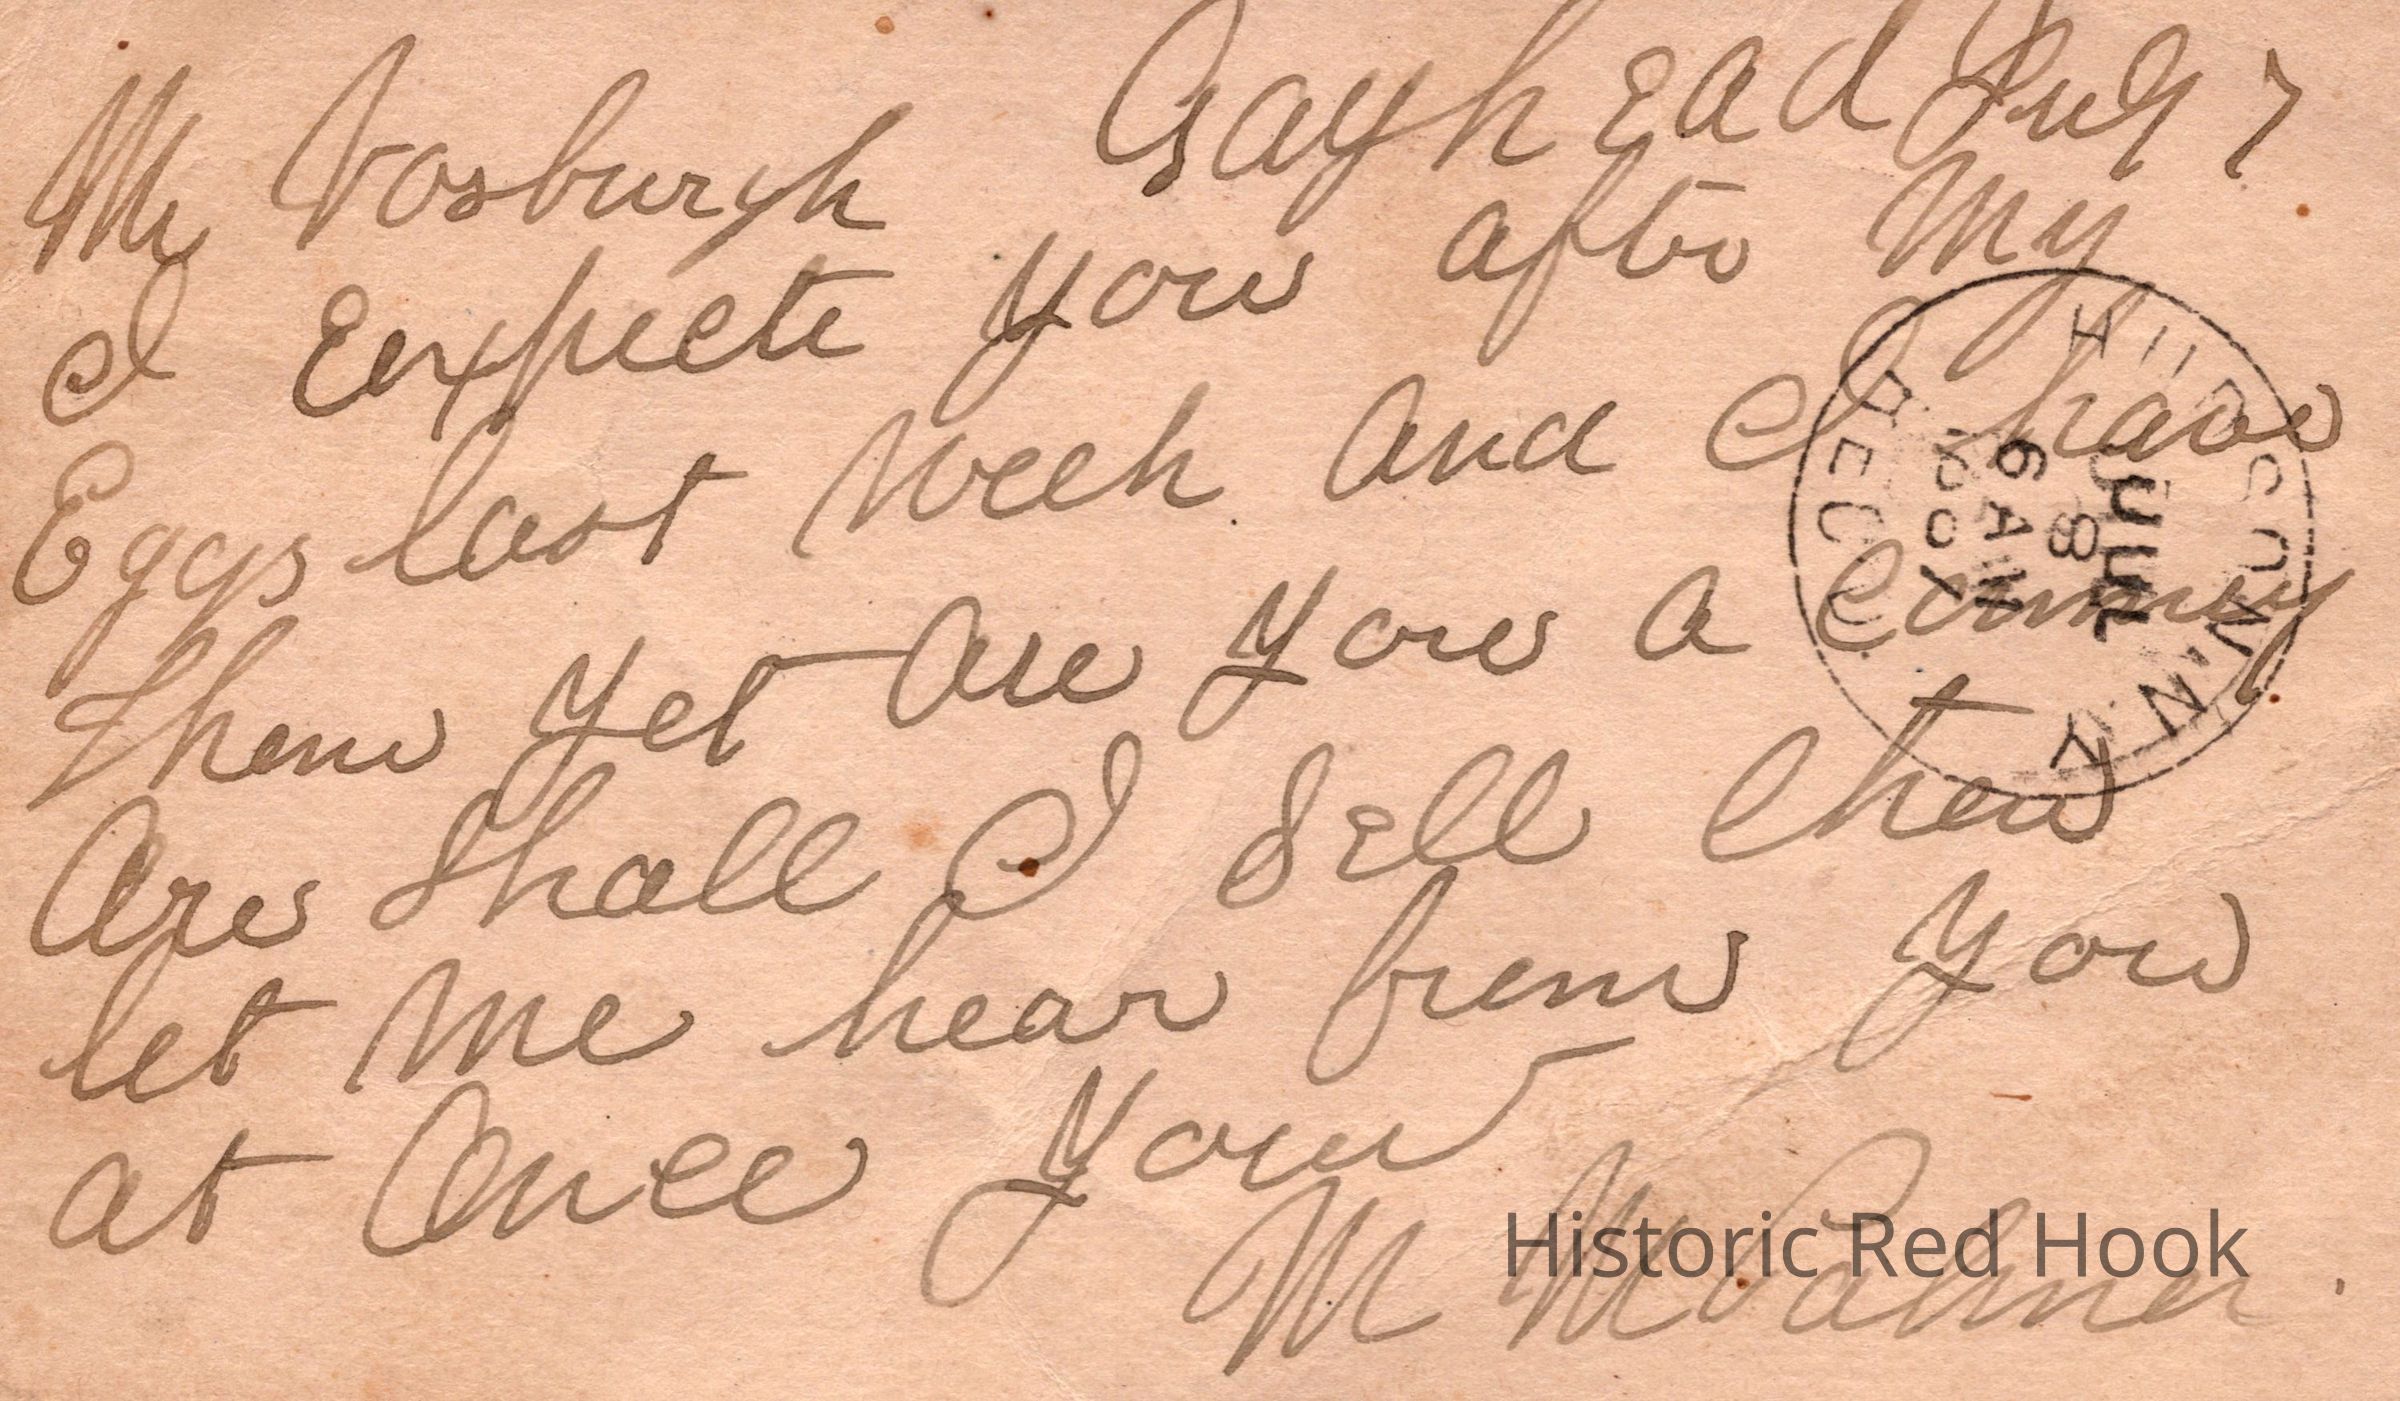 Gayhead July 7
Mr Vosburgh
I Expecte you afto My
Eggs last week and I have
them yet are you a Comey
Are Shall I Sell them
let me hear frem you
at Once Your
M M Palmer
HUDSON, N.Y.
JUL
8
6 AM
REC'D.
Historic Red Hook